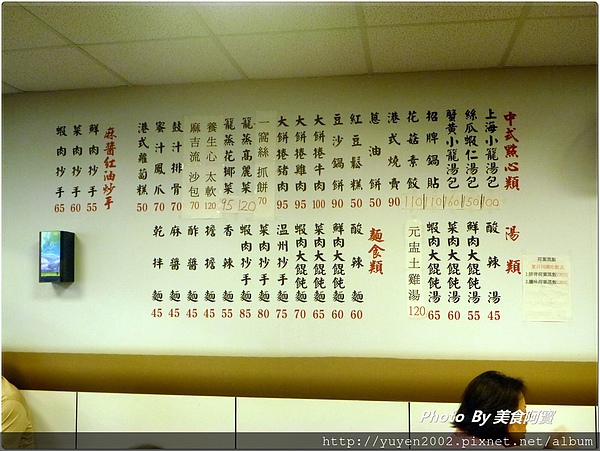 中式點心類
上海小籠湯包 100
絲瓜蝦仁湯包 150
蟹黃小籠湯包 160
招牌鍋貼 110
花菇素餃 110
港式燒賣 90
蔥油餅 50
紅豆鬆糕 50
豆沙鍋餅 90
大餅捲牛肉 100
大餅捲雞肉 95
大餅捲豬肉 95
一窩絲抓餅 70
籠蒸高麗菜 120
籠蒸花椰菜 95
養生心太軟 120
麻吉流沙包 70
豉汁排骨 70
蜜汁鳳爪 70
港式蘿蔔糕 50
麻醬紅油炒手
鮮肉抄手 55
菜肉抄手 60
蝦肉抄手 65
湯類
酸辣湯 45
鮮肉大餛飩湯 55
菜肉大餛飩湯 60
蝦肉大餛飩湯 65
元盅土雞湯 120
麵食類
酸辣麵 60
鮮肉大餛飩麵 60
菜肉大餛飩麵 65
蝦肉大餛飩麵 70
溫州抄手麵 75
菜肉抄手麵 80
蝦肉抄手麵 85
香辣麵 55
擔擔麵 45
醡醬麵 45
麻醬麵 45
乾拌麵 45
Photo By 美食阿寶
http://yuyen2002.pixnet.net/album